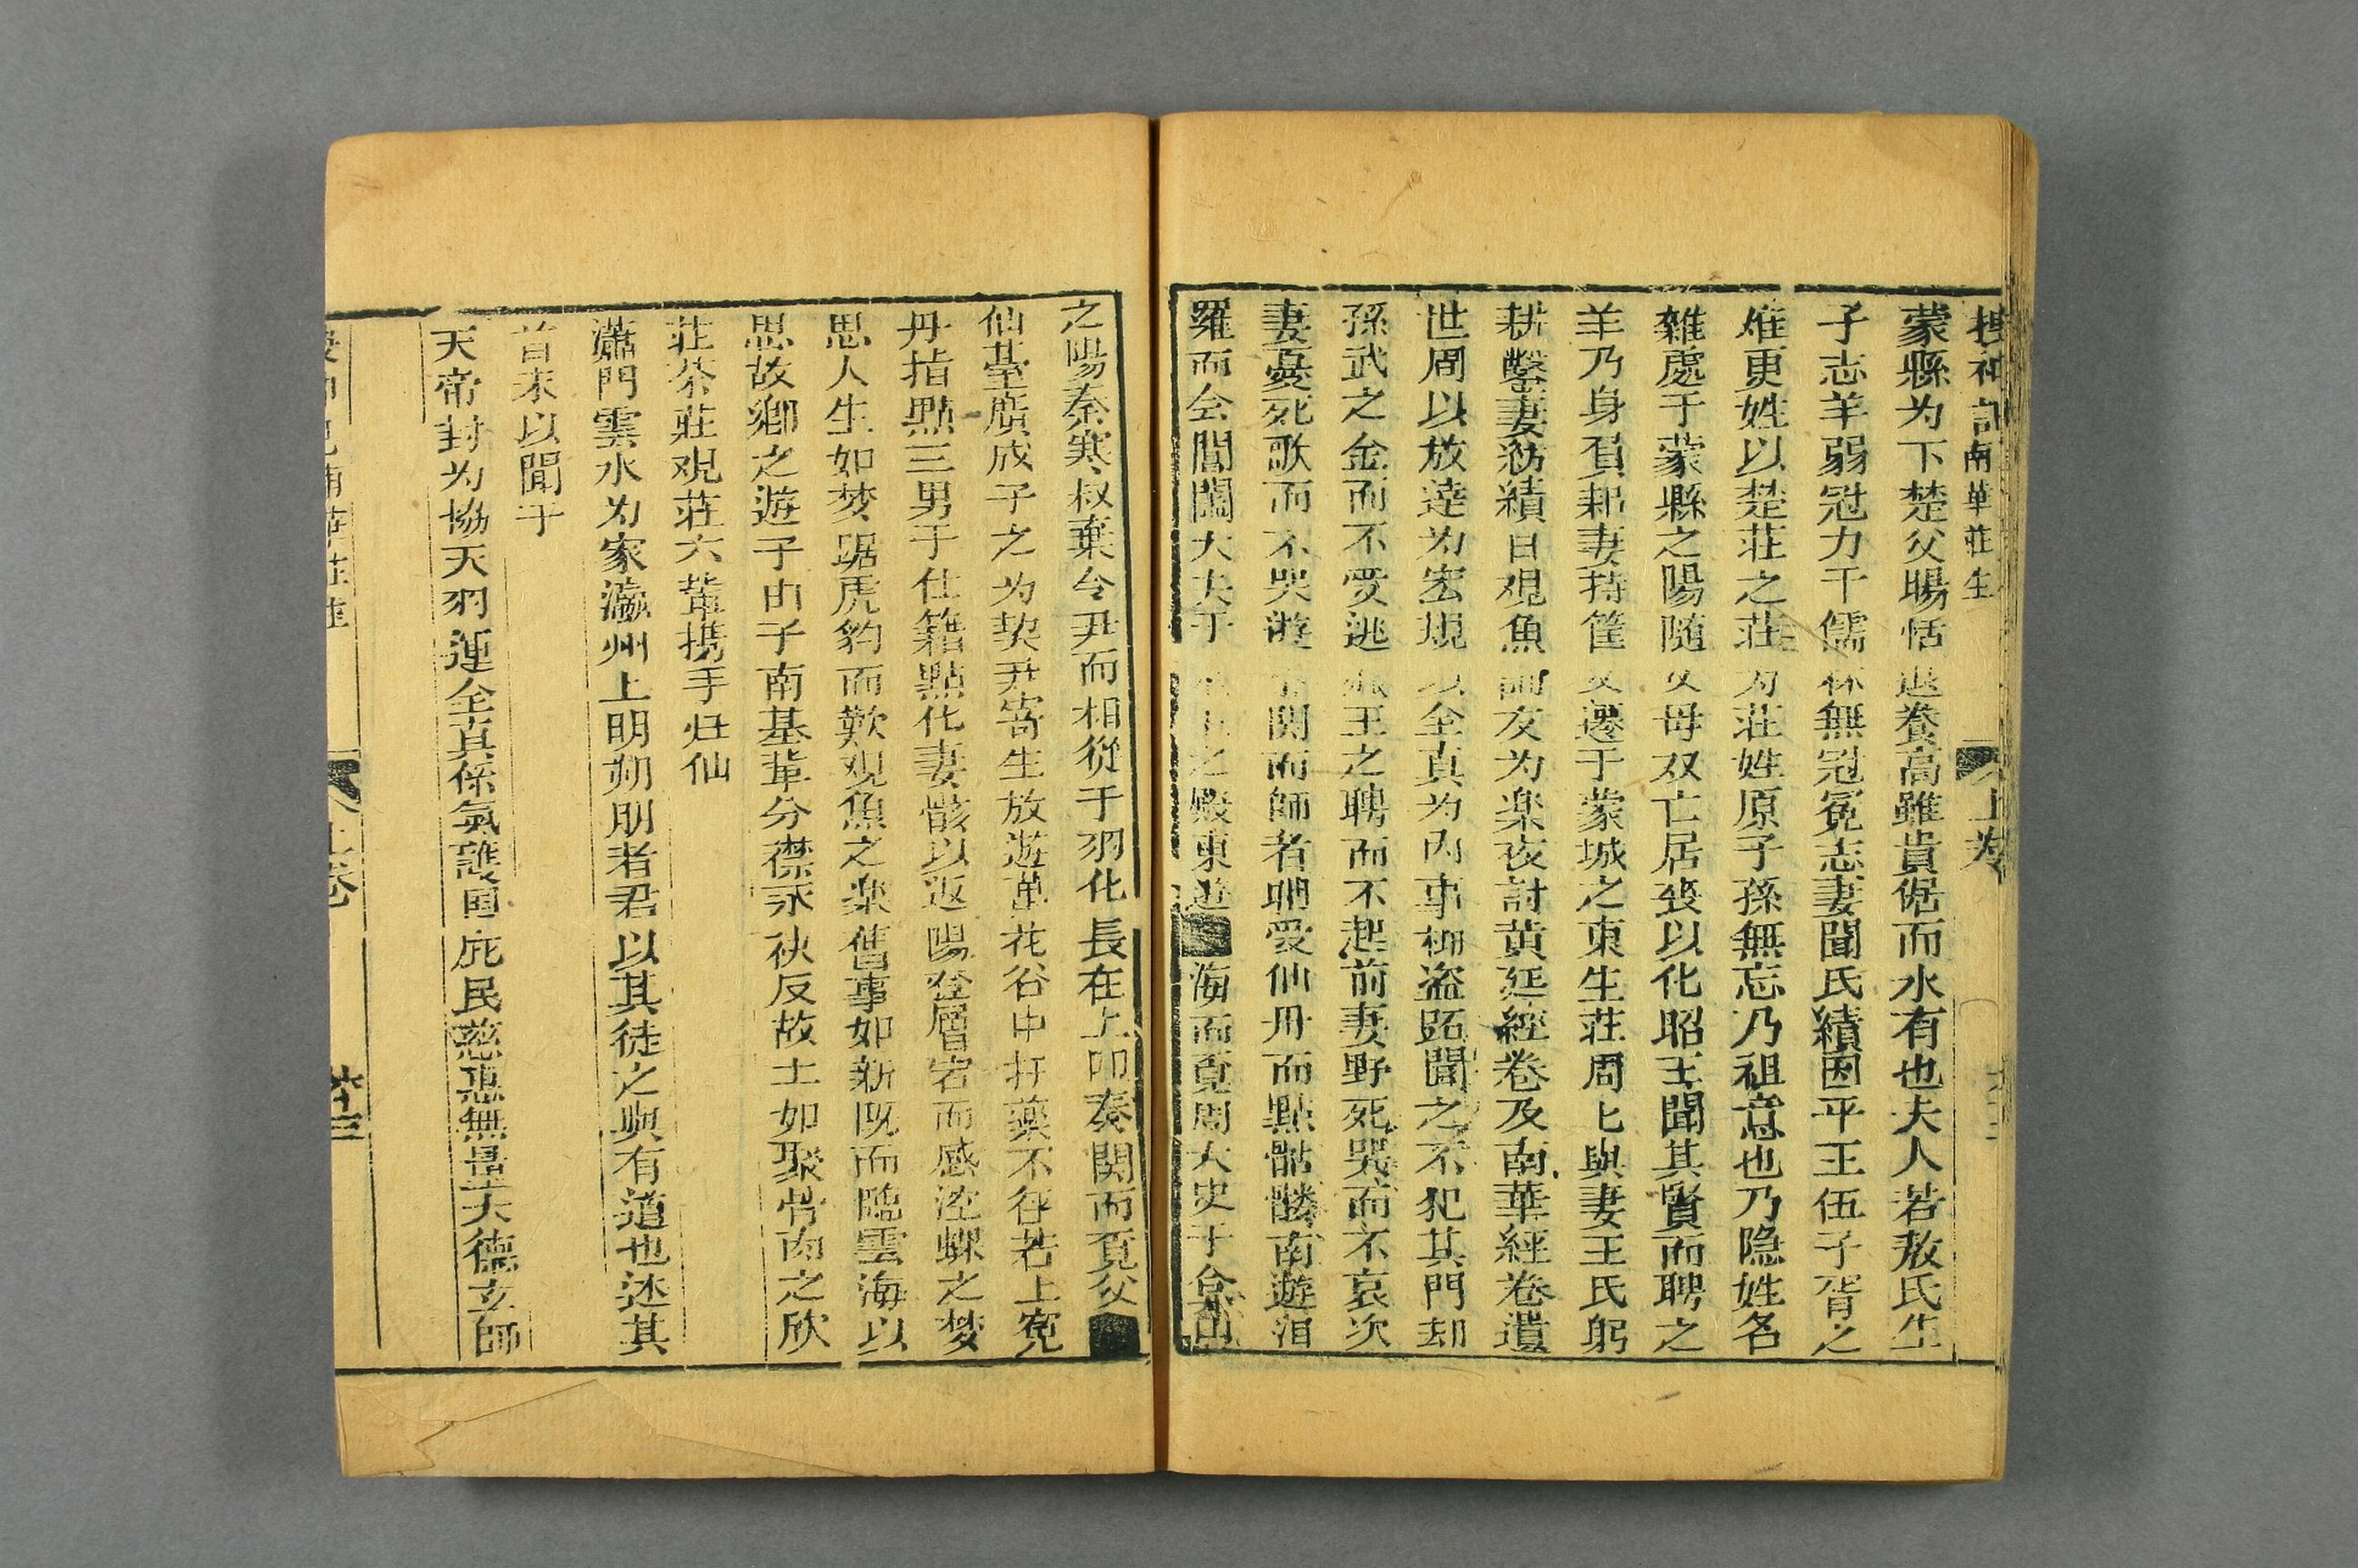 搜神記南華莊生 上卷
蒙縣为下楚父暘恬退養高雖貴倨而水有也夫人若敖氏生
子志羊弱冠力干儒林無冠冕志妻聞氏績因平王伍子胥之
难更姓以楚莊之莊为莊姓原子孫無忘乃祖意也乃隐姓名
雜處于蒙縣之陽随父母双亡居丧以化昭王聞其賢而聘之
羊乃身負耒妻持筐又遷于蒙城之東生莊周匕與妻王氏躬
耕鑿妻紡績日观魚而友为楽夜討黄廷經卷及南華經卷遺
世周以放達为宏規以全真为内事柳盗跖聞之不犯其門却
孫武之金而不受逃 王之聘而不起前妻野死哭而不哀次
妻憂死歌而不哭遊 関而師者聃受仙丹而點骷髅南遊汨
羅而会閭闔大夫于 之殿東遊海而覓周大史于
之陽秦寒叔棄令尹而相從于羽化長在上叩奏関而覓父
仙䑓廣成子之为契尹寄生放遊萬花谷中扞藥不谷若上寃
丹指點三男于仕籍點化妻骸以返陽登層宕而感泣蝶之梦
思人生如梦踞虎豹而歎观魚之楽舊事如新既而臨雲海以
思故鄉之遊子由子南基軰分襟永袂反故土如聚骨肉之欣
莊荼莊观莊六軰携手归仙
瀟門雲水为家瀛州上明朔朋者君以其徒之與有道也述其
首末以聞于
天帝封为協天羽運全真保氣護国庇民慈惠無量大德玄師
南華莊生 上卷 廿三